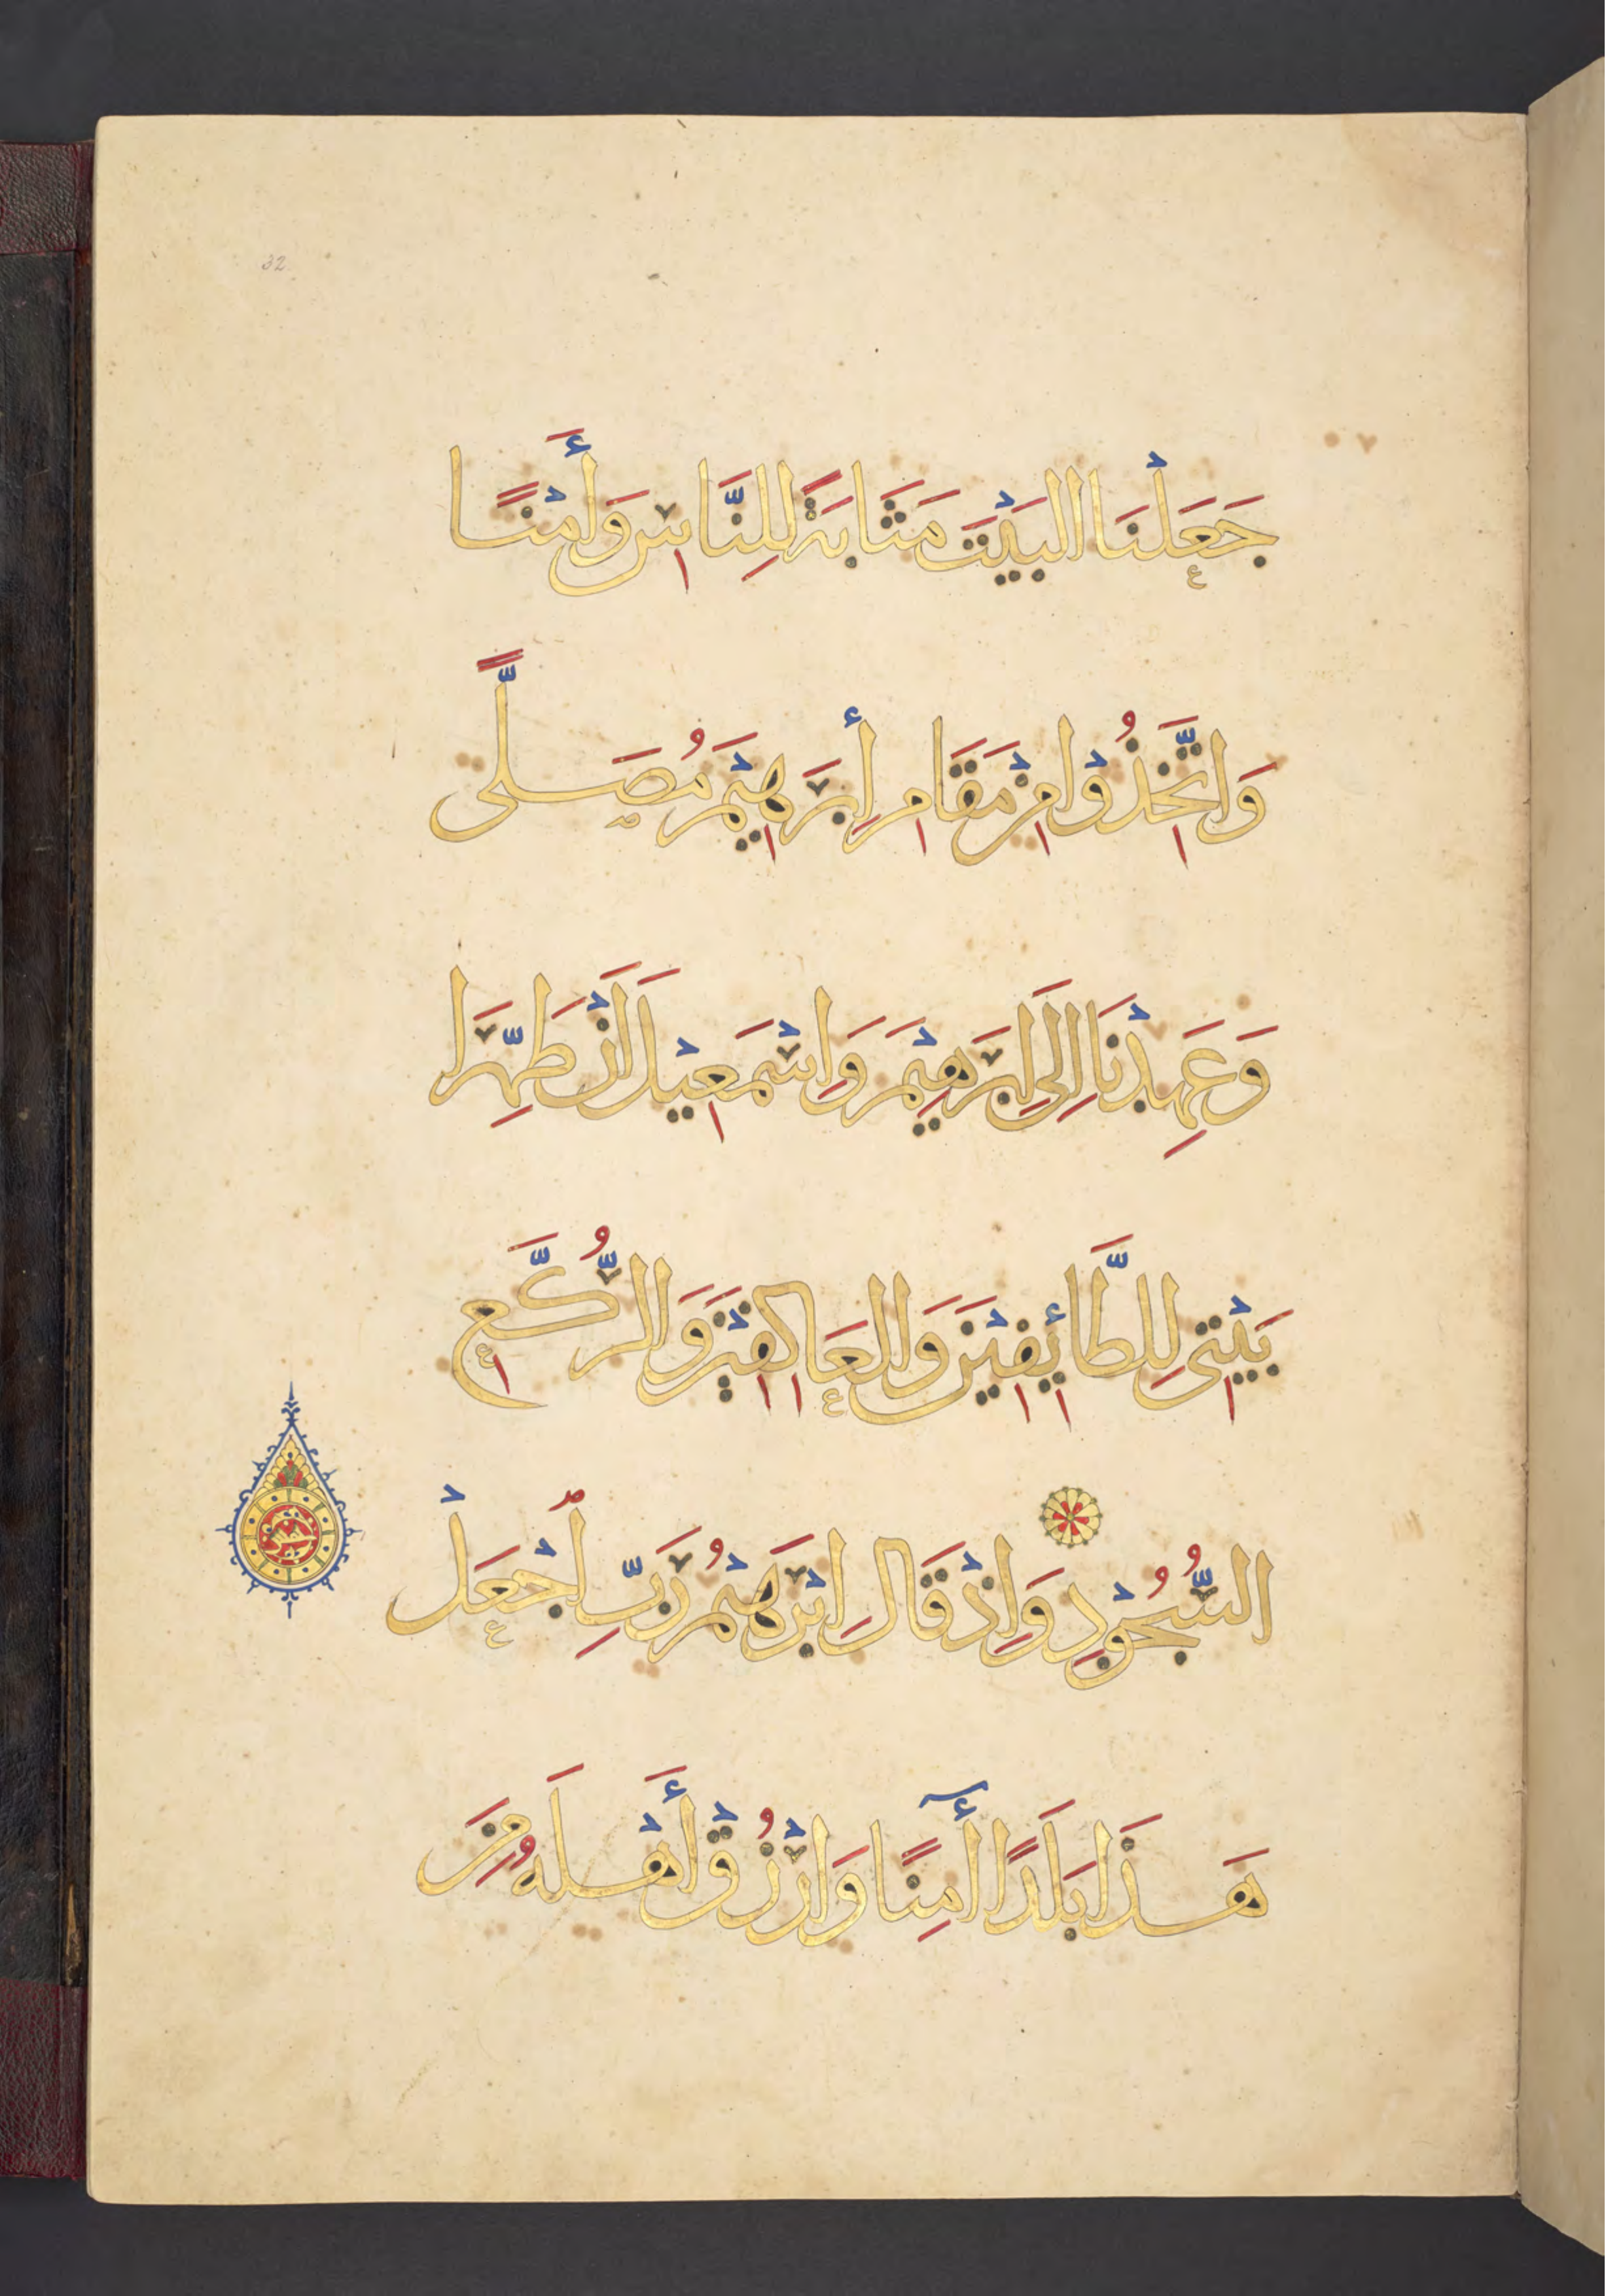 32
جَعَلْنَا البَيْتَ مَثَابَةً لِلنَّاسِ وَأَمْنًا
وَاتَّخَذُوْا مِنْ مَقَامِ إِبْرَهِيْمَ مُصَلًّى
وَعَهِدْنَا إِلَى إِبْرَهِيْمَ وَاِسْمَعِيْلَ أَنْ طَهِّرَا
بَيْتِىَ لِلطَّائِفِيْنَ وَالعَاكِفِيْنَ وَالرُّكَّعِ
السُّجُوْدِ وَاِذْ قَالَ اِبْرَهِيْمُ رَبِّ اجْعَلْ
هَذَا بَلَدًا أٓمِنًا وَارْزُقْ أَهْلَهُ مِنَ